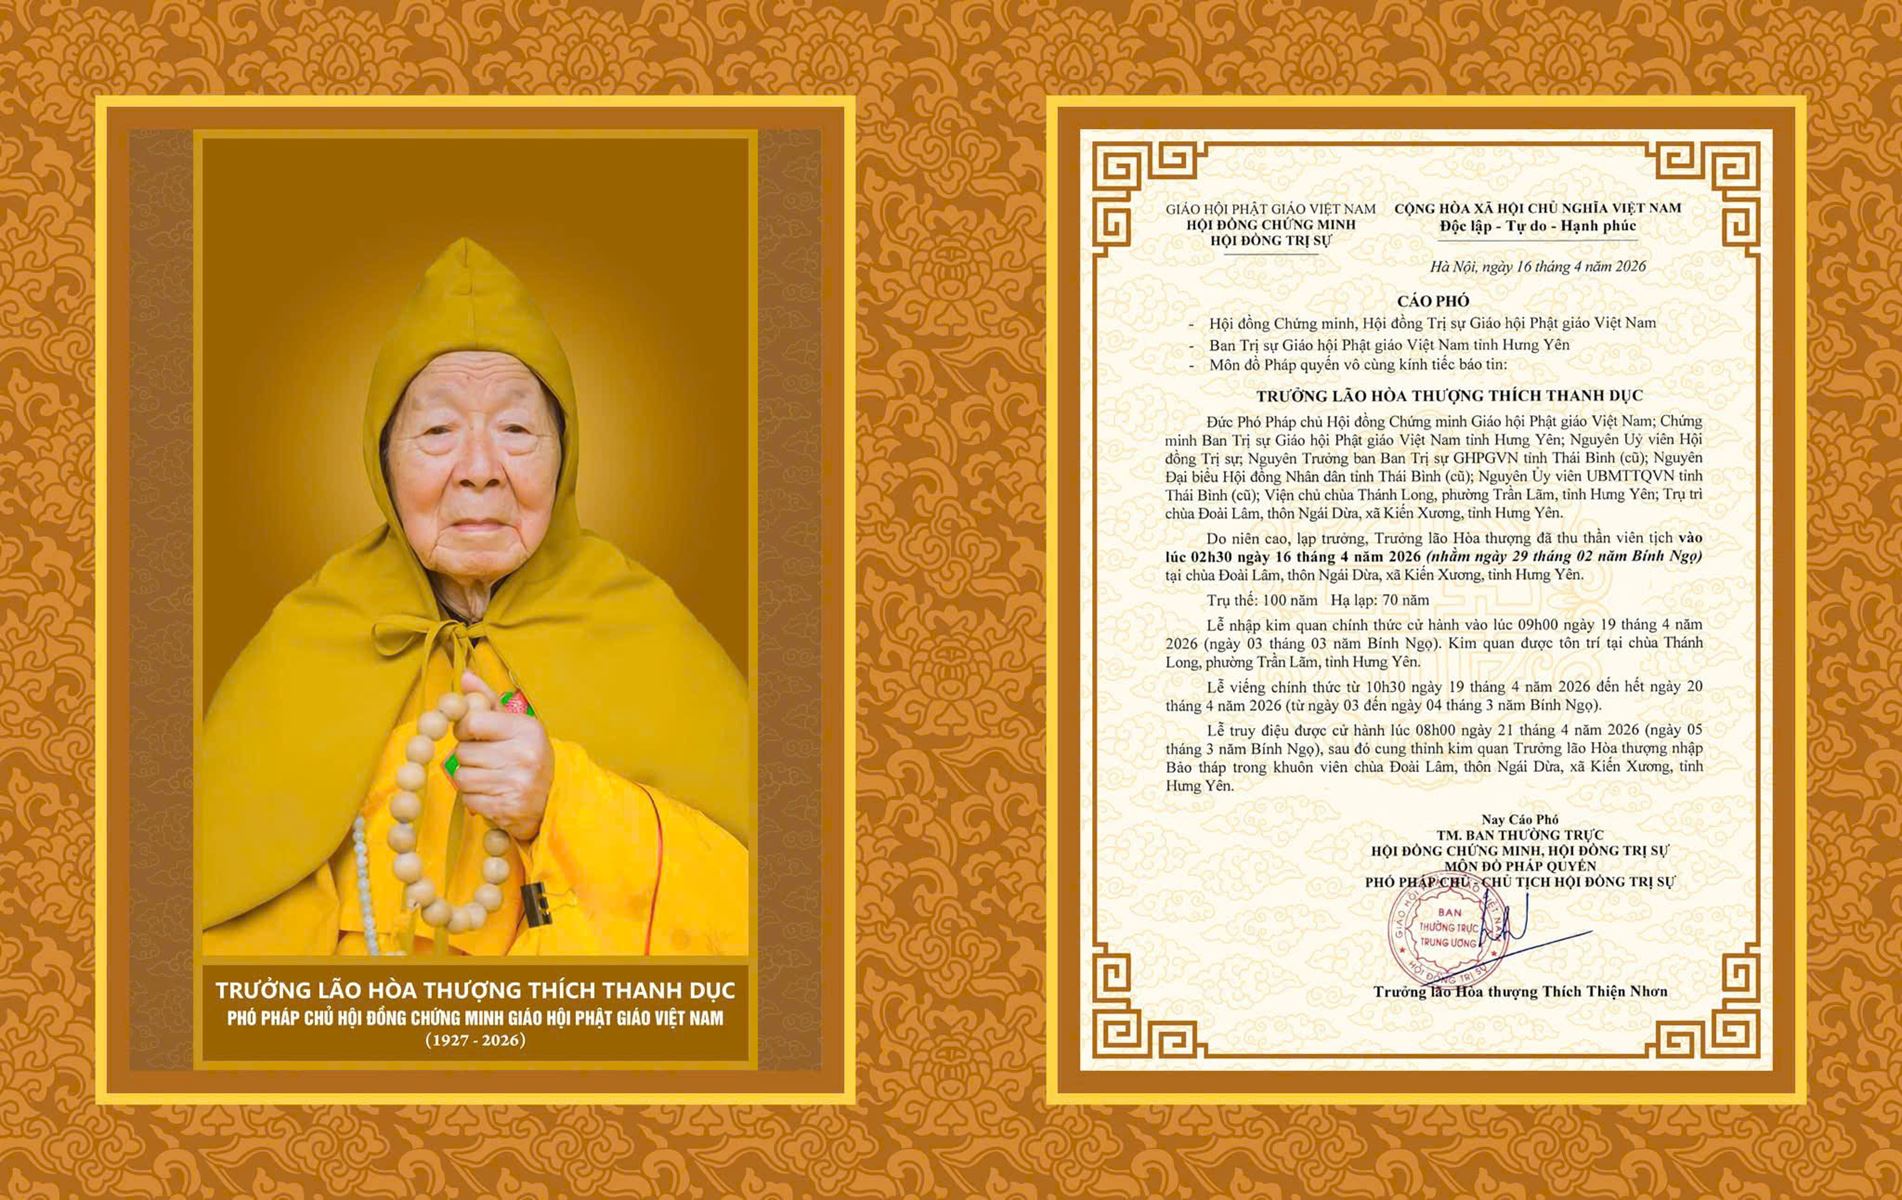 TRƯỞNG LÃO HÒA THƯỢNG THÍCH THANH DỤC
PHÓ PHÁP CHỦ HỘI ĐỒNG CHỨNG MINH GIÁO HỘI PHẬT GIÁO VIỆT NAM
(1927 - 2026)
GIÁO HỘI PHẬT GIÁO VIỆT NAM
HỘI ĐỒNG CHỨNG MINH
HỘI ĐỒNG TRỊ SỰ
CỘNG HÒA XÃ HỘI CHỦ NGHĨA VIỆT NAM
Độc lập - Tự do - Hạnh phúc
Hà Nội, ngày 16 tháng 4 năm 2026
CÁO PHÓ
- Hội đồng Chứng minh, Hội đồng Trị sự Giáo hội Phật giáo Việt Nam
- Ban Trị sự Giáo hội Phật giáo Việt Nam tỉnh Hưng Yên
- Môn đồ Pháp quyến vô cùng kính tiếc báo tin:
TRƯỞNG LÃO HÒA THƯỢNG THÍCH THANH DỤC
Đức Phó Pháp chủ Hội đồng Chứng minh Giáo hội Phật giáo Việt Nam; Chứng
minh Ban Trị sự Giáo hội Phật giáo Việt Nam tỉnh Hưng Yên; Nguyên Uỷ viên Hội
đồng Trị sự; Nguyên Trưởng ban Ban Trị sự GHPGVN tỉnh Thái Bình (cũ); Nguyên
Đại biểu Hội đồng Nhân dân tỉnh Thái Bình (cũ); Nguyên Ủy viên UBMTTQVN tỉnh
Thái Bình (cũ); Viện chủ chùa Thánh Long, phường Trần Lãm, tỉnh Hưng Yên; Trụ trì
chùa Đoài Lâm, thôn Ngái Dừa, xã Kiến Xương, tỉnh Hưng Yên.
Do niên cao, lạp trưởng, Trưởng lão Hòa thượng đã thu thần viên tịch vào
lúc 02h30 ngày 16 tháng 4 năm 2026 (nhằm ngày 29 tháng 02 năm Bính Ngọ)
tại chùa Đoài Lâm, thôn Ngái Dừa, xã Kiến Xương, tỉnh Hưng Yên.
Trụ thế: 100 năm Hạ lạp: 70 năm
Lễ nhập kim quan chính thức cử hành vào lúc 09h00 ngày 19 tháng 4 năm
2026 (ngày 03 tháng 03 năm Bính Ngọ). Kim quan được tôn trí tại chùa Thánh
Long, phường Trần Lãm, tỉnh Hưng Yên.
Lễ viếng chính thức từ 10h30 ngày 19 tháng 4 năm 2026 đến hết ngày 20
tháng 4 năm 2026 (từ ngày 03 đến ngày 04 tháng 3 năm Bính Ngọ).
Lễ truy điệu được cử hành lúc 08h00 ngày 21 tháng 4 năm 2026 (ngày 05
tháng 3 năm Bính Ngọ), sau đó cung thỉnh kim quan Trưởng lão Hòa thượng nhập
Bảo tháp trong khuôn viên chùa Đoài Lâm, thôn Ngái Dừa, xã Kiến Xương, tỉnh
Hưng Yên.
Nay Cáo Phó
TM. BAN THƯỜNG TRỰC
HỘI ĐỒNG CHỨNG MINH, HỘI ĐỒNG TRỊ SỰ
MÔN ĐỒ PHÁP QUYẾN
PHÓ PHÁP CHỦ - CHỦ TỊCH HỘI ĐỒNG TRỊ SỰ
GIÁO HỘI PHẬT GIÁO VIỆT NAM
BAN
THƯỜNG TRỰC
TRUNG ƯƠNG
HỘI ĐỒNG TRỊ SỰ
Trưởng lão Hòa thượng Thích Thiện Nhơn